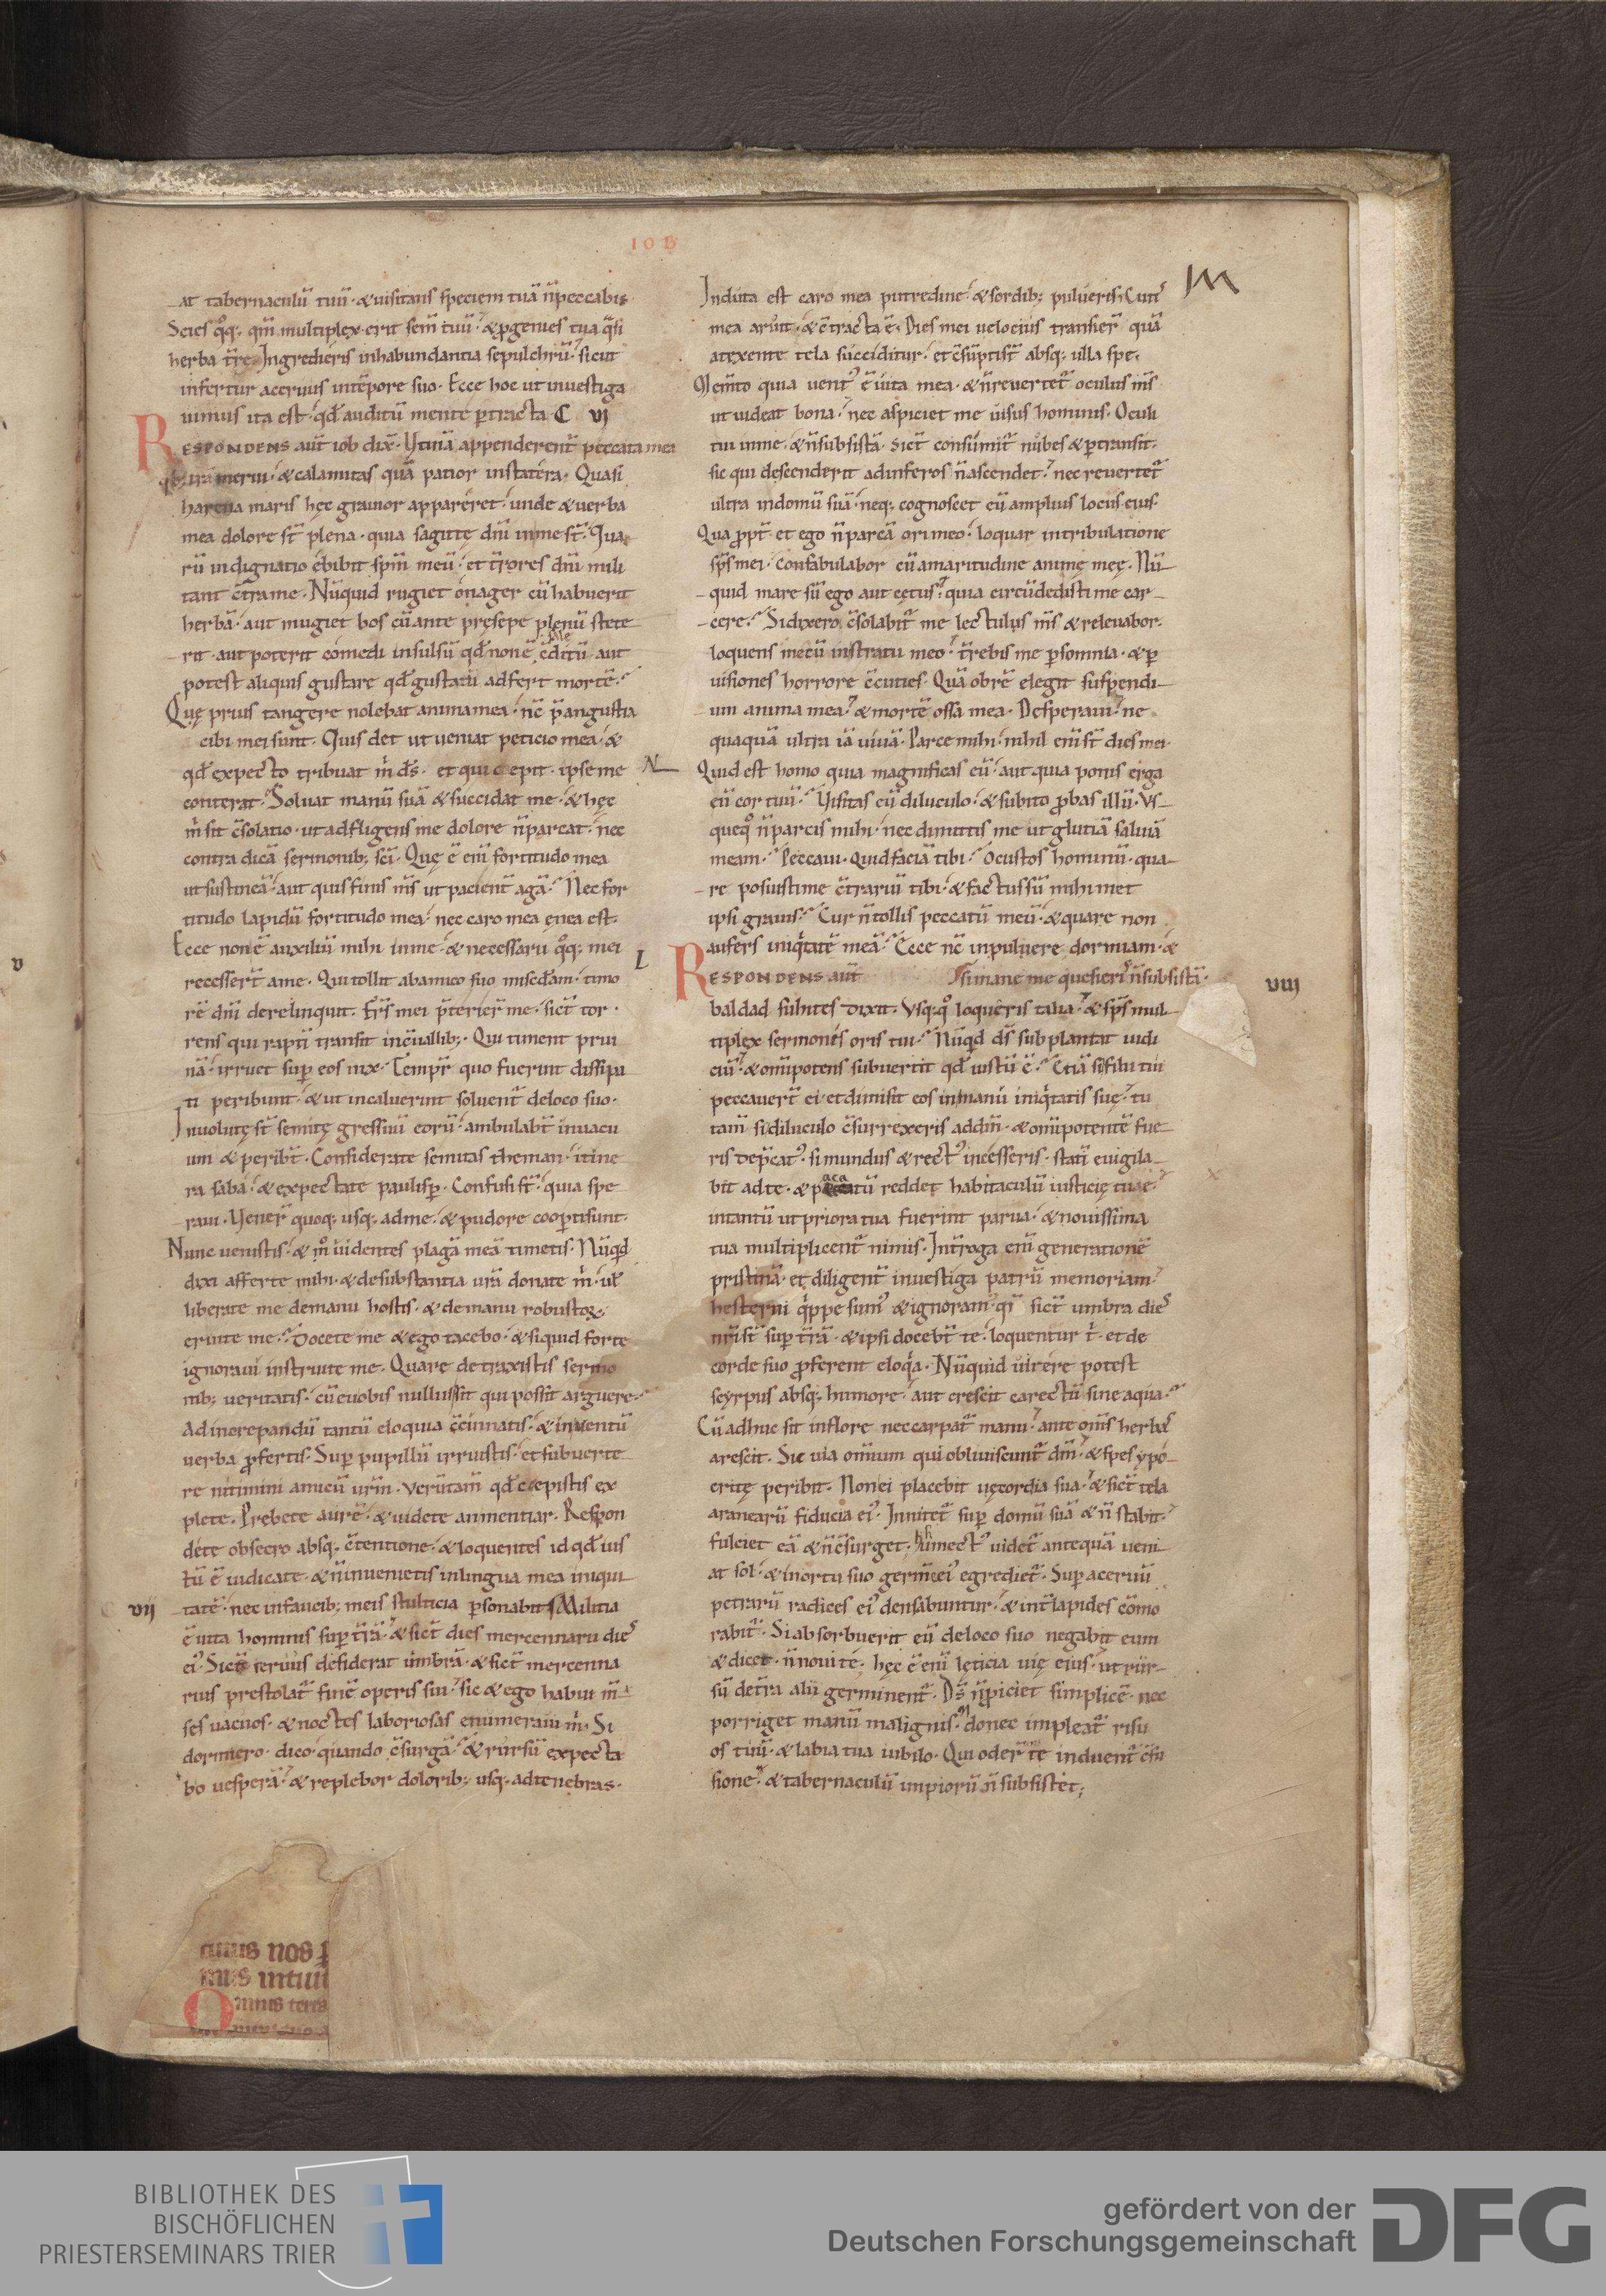 IOB
M
at tabernaculū tuū · & uisitans speciem tuā n̄ peccabis
Scies q̊q; qm̄ multiplex erit sem̄ tuū · & ꝓgenies tua q̄si
herba t̄re. Ingredieris inhabundantia sepulchrū · sicut
infertur aceruus intēpore suo · Ecce hoc ut inuestiga
uimus ita est · qd̄ auditū mente ꝑtracta · C VI
RESPONDENS aut̄ iob dix̄ · Vtinā appenderent̄ peccata mea
merui · & calamitas quā patior instatera · Quasi
harena maris hęc grauior appareret · unde & uerba
mea dolore st̄ plena · quia sagittę dn̄i inme st̄ · Qua
rū indignatio ebibit spm̄ meū · et t̄rores dn̄i mili
tant c̄tra me · Nūquid rugiet onager cū habuerit
herbā · aut mugiet bos cū ante pręsepe plenū stete
rit · aut poterit comedi insulsū qd̄ non ē sale c̄ditū · aut
potest aliquis gustare qd̄ gustatū adfert mortē ·
Quę prius tangere nolebat anima mea · nc̄ p̄ angustia
cibi mei sunt · Quis det ut ueniat peticio mea · &
qd̄ expecto tribuat m̄ ds̄ · et qui cepit · ipse me
N
conterat · Soluat manū suā & succidat me · & hęc
m̄ sit c̄solatio · ut adfligens me dolore n̄ parcat · nec
contra dicā sermonib; sc̄i · Quę ē eni fortitudo mea
ut sustineā · aut quis finis m̄s ut pacient̄ agā · Nec for
titudo lapidū fortitudo mea · nec caro mea ęnea est ·
Ecce non ē auxiliū mihi inme · & necessarii q̊q; mei
L
recessert̄ ame · Qui tollit abamico suo misc̄dam · timo
rē dn̄i derelinquit · Fr̄s mei p̄terier̄ me · sict̄ tor ·
rens qui raptī transit incūallib; · Qui timent prui
nā · irruet suꝑ eos nix · Tempr̄ quo fuerint dissipa
ti peribunt · & ut incaluerint soluent̄ deloco suo ·
Inuolutę st̄ semitę gressuū eorū · ambulabt̄ inuacu
um & peribt̄ · Considerate semitas theman · itine
ra saba · & expectate paulisꝑ · Confusi st̄ · quia spe
raui · Vener̄ quoq; usq; adme · & pudore cooꝑti sunt ·
Nunc uenistis · & m̊ uidentes plagā meā timetis · Nūq̄d
dixi afferte mihi · & desubstantia ur̄a donate m̄ · uł
liberate me demanu hostis · & demanu robustoꝝ
eruite me · Docete me & ego tacebo · & siquid forte
ignoraui instruite me · Quare detraxistis sermo
nib; ueritatis · cū euobis nullus sit qui possit arguere ·
Ad increpandū tantū eloquia c̄cinnatis · & inuentū
uerba ꝓfertis · Suꝑ pupillū irruistis · et subuerte
re nitimini amicū ur̄m · Verūtam̄ qd̄ cepistis ex
plete · Prebete aurē · & uidete an mentiar · Respon
dete obsecro absq; c̄tentione · & loquentes id qd̄ ius
tū ē iudicate · & n̄ inuenietis inlingua mea iniqui
VII
tatē · nec infaucib; meis stulticia ꝑsonabit · Militia
ē uita hominis suꝑ t̄rā · & sict̄ dies mercennarii dies
ei᾽ · Sicut seruus desiderat umbrā · & sict̄ mercenna
rius prestolat̄ finē operis sui · sic & ego habui m̄
ses uacuos · & noctes laboriosas enumeraui m̄ · Si
dormiero · dico · quando c̄surgā · & rursū expecta
bo uesperā · & replebor dolorib; usq; ad tenebras ·
Induta est caro mea putredine · & sordib; pulueris · Cutis
mea aruit · & c̄tracta ē · Dies mei uelocius transier̄ quā
atexente tela succiditur · et c̄sūpti st̄ absq; ulla spe ·
Mem̄to quia uent᾽ ē uita mea · & n̄ reuertet̄ oculus m̄s
ut uideat bona · nec aspiciet me uisus hominis · Oculi
tui inme · & n̄ subsistā · Sict̄ consūmit̄ nubes & ꝑtransit ·
sic qui descenderit adinferos n̄ ascendet · nec reuertet̄
ultra indomū suā · neq; cognoscet eū amplius locus eius ·
Qua ꝓpt̄ et ego n̄ parcā ori meo · loquar intribulatione
sps̄ mei · Confabulabor cū amaritudine animę meę · Nū
quid mare sū ego aut cętus · quia circūdedisti me car
cere · Si dixero c̄solabit̄ me lectulus m̄s & releuabor ·
loquens mecū instratu meo · t̄rebis me ꝑ somnia · & ꝑ
uisiones horrore c̄cuties · Quā obrē elegit suspendi
um anima mea · & mortē ossa mea · Desperaui · ne
quaquā ultra iā uiuā · Parce mihi · nihil eni st̄ dies mei ·
Quid est homo quia magnificas eū · aut quia ponis erga
eū cor tuū · Visitas eū diluculo · & subito ꝓbas illū · Vs
queq̊ n̄ parcis mihi · nec dimittis me ut glutiā saliuā
meam · Peccaui · Quid faciā tibi · O custos hominū · qua
re posuisti me c̄trariū tibi · & factus sū mihimet
ipsi grauis · Cur n̄ tollis peccatū meū · & quare non
aufers iniq̄tatē meā · Ecce nc̄ inpuluere dormiam · &
RESPONDENS aut̄ si mane me quesieris n̄ subsistā ·
VIII
baldad suhites dixit · Vsq; q̊ loqueris talia · & sps̄ mul
tiplex sermones oris tui · Nūq̄d ds̄ subplantat iudi
ciū · & omīpotens subuertit qd̄ iustū ē · Etiā si filii tui
peccauert̄ ei · et dimisit eos inmanū iniq̄tatis suę · tu
tam̄ si diluculo c̄surrexeris addm̄ · & omīpotentē fue
ris dep̄cat᾽ · si mundus & rect᾽ incesseris · stati euigila
bit ad te · & pacatū reddet habitaculū iusticię tuae ·
intantū ut priora tua fuerint parua · & nouissima
tua multiplicent̄ nimis · Int̄roga eni generationē
pristinā · et diligent̄ inuestiga patrū memoriam ·
hesterni q̄ppe sum᾽ & ignoram᾽ · qr̄ sict̄ umbra dies
nr̄i st̄ suꝑ t̄rā · & ipsi docebt̄ te · loquentur t̄ · et de
corde suo ꝓferent eloq̄a · Nūquid uirere potest
scyrpus absq; humore · aut crescit carectū sine aqua ·
Cū adhuc sit inflore nec carpat̄ manu · ante om̄s herbas
arescit · Sic uia omīum qui obliuiscunt̄ dm̄ · & spes ypo
critę peribit · Non ei placebit uęcordia sua · & sict̄ tela
aranearū fiducia ei᾽ · Innitet̄ suꝑ domū suā & n̄ stabit ·
fulciet eā & n̄ c̄surget · humect᾽ uidet̄ antequā ueni
at sol · & inortu suo germē ei᾽ egrediet̄ · Suꝑ aceruū
petrarū radices ei᾽ densabuntur · & int̄ lapides cōmo
rabit̄ · Si absorbuerit eū deloco suo negabit eum
& dicet · n̄ noui te · hęc ē eni lęticia uię eius · ut rur
sū det̄ra alii germinent̄ · Ds̄ n̄ ꝓiciet simplicē · nec
porriget manū malignis · donec impleat̄ risu
os tuū · & labia tua iubilo · Qui oder̄ te induent̄ c̄fu
sione · & tabernaculū impiorū n̄ subsistet;
nos
Omnis terra
BIBLIOTHEK DES
BISCHÖFLICHEN
PRIESTERSEMINARS TRIER
gefördert von der
Deutschen Forschungsgemeinschaft
DFG